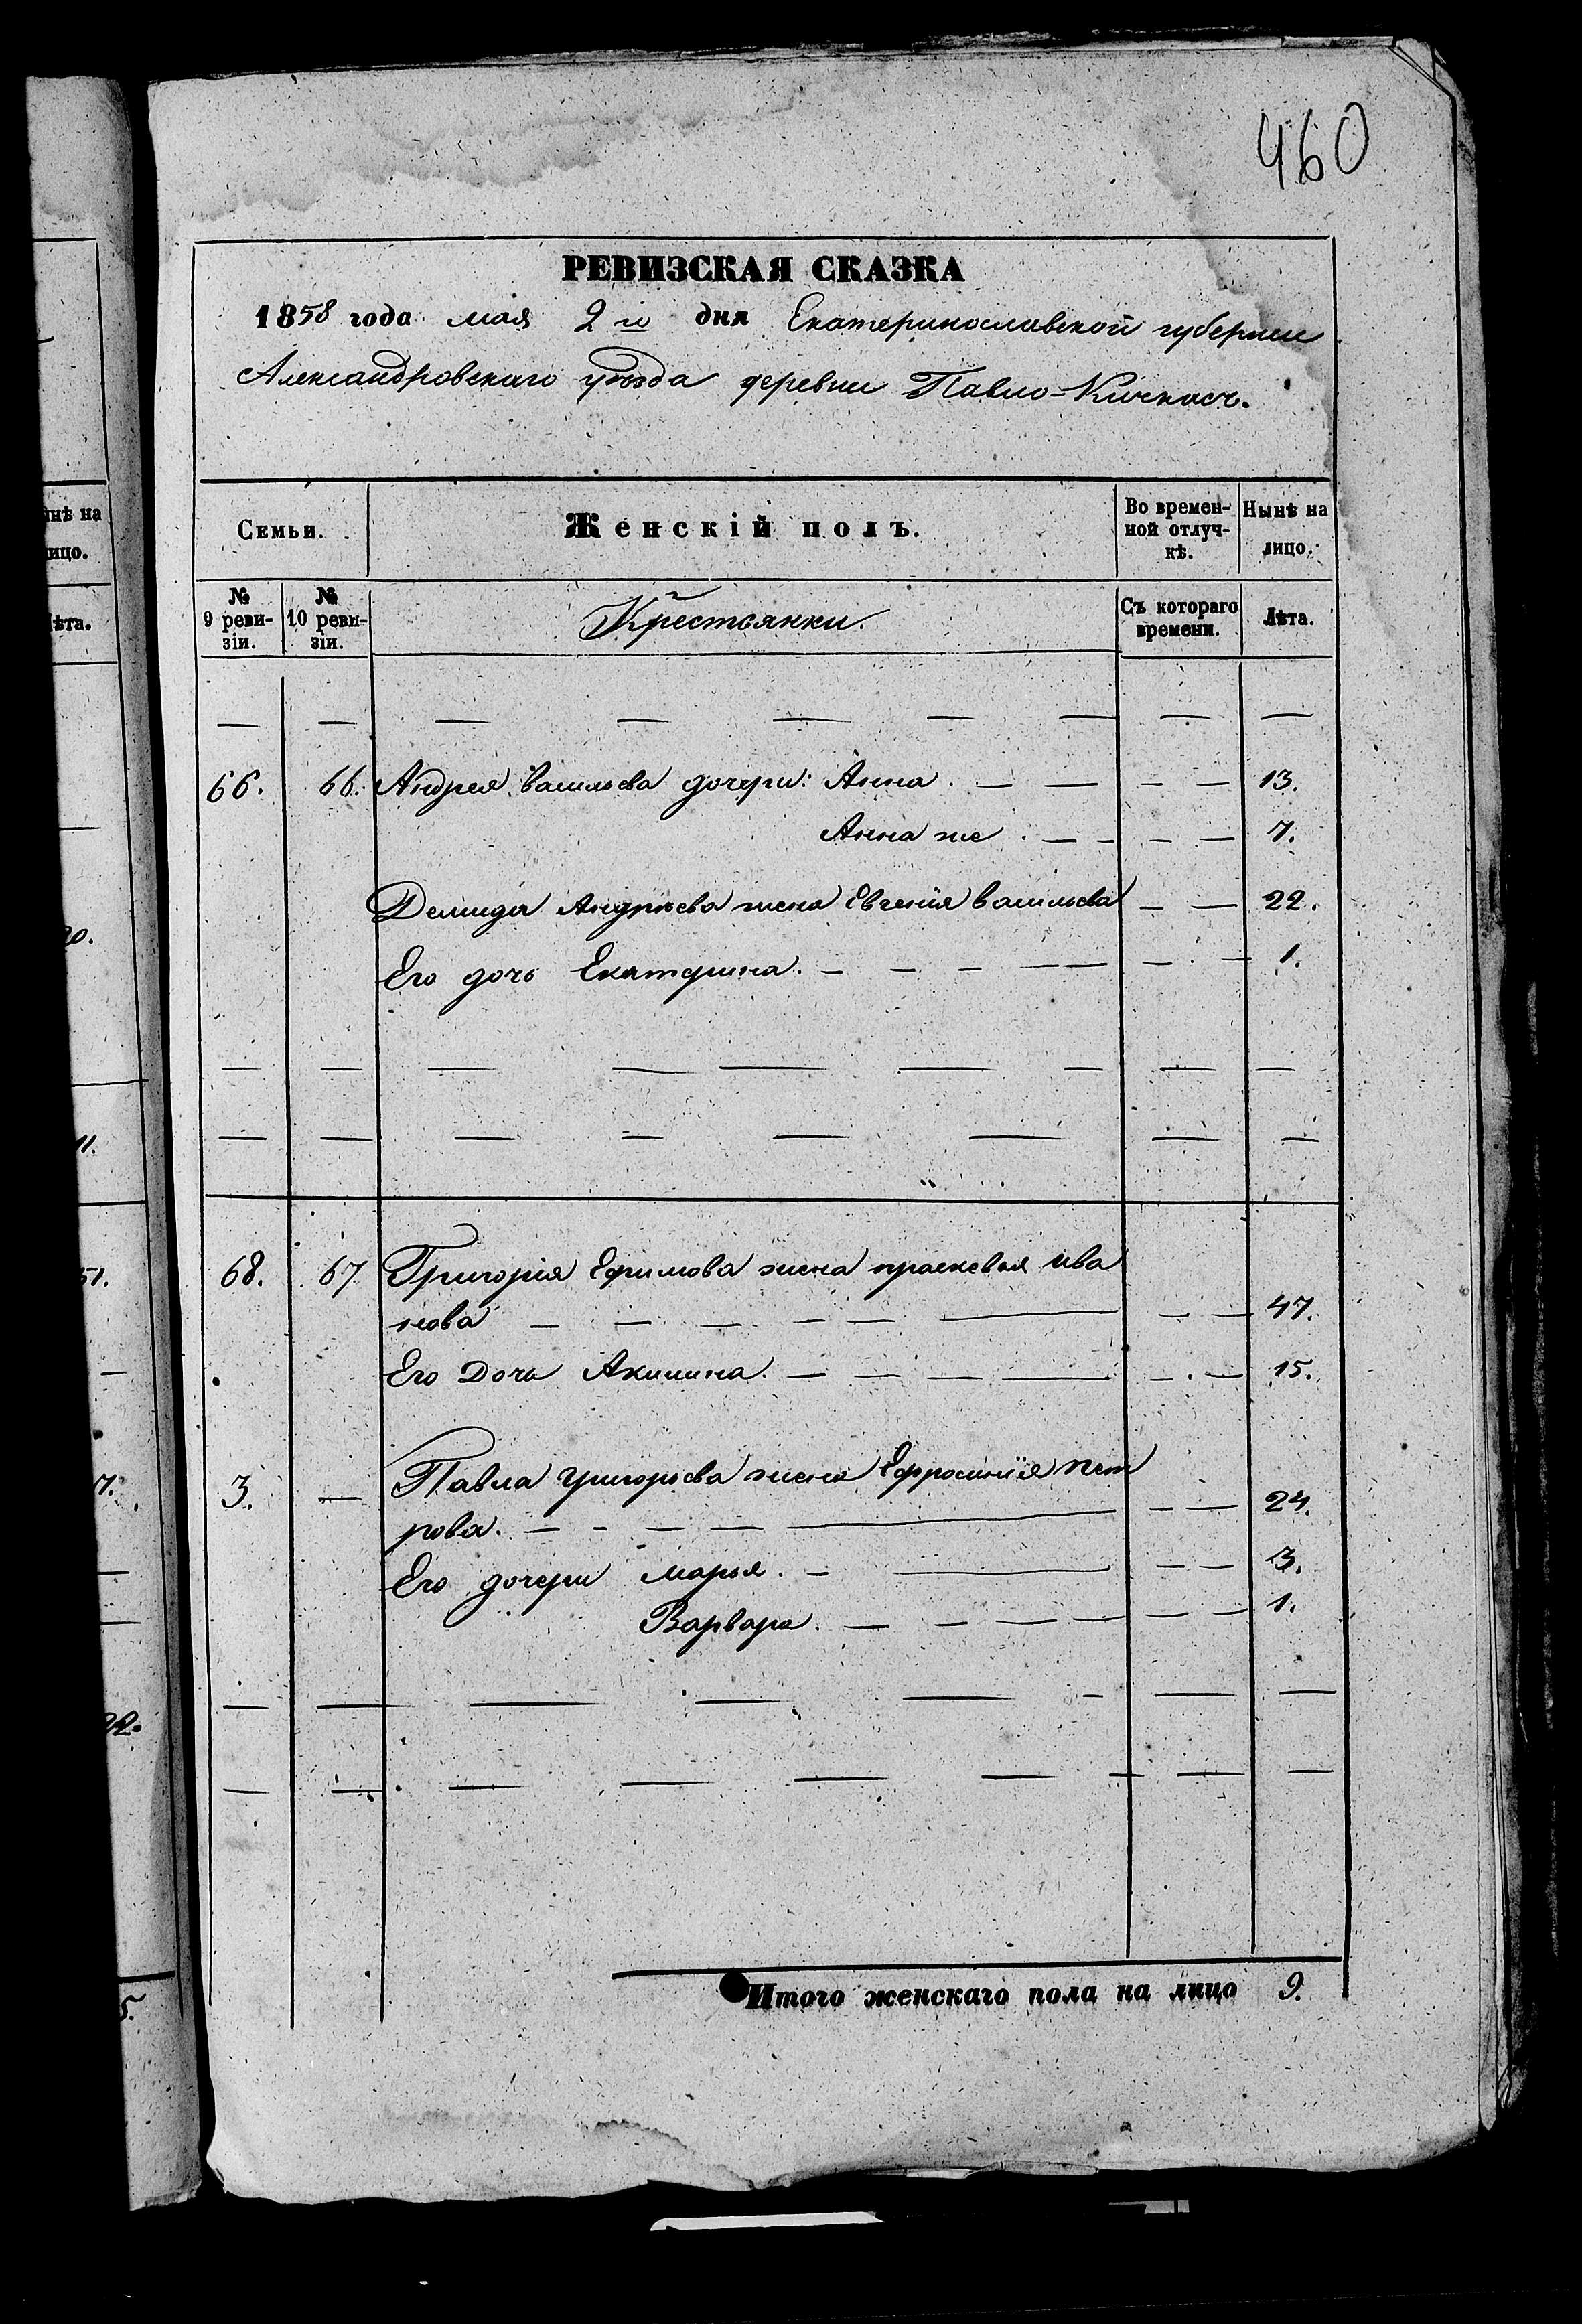 460
РЕВИЗСКАЯ СКАЗКА
1858 года мая 2го дня Екатеринославской губернии
Александровскаго уѣзда деревни Павло-Кичкасъ.
Семьи. Женскій полъ. Во времен- ной отлуч- кѣ. Нынѣ на лицо.
№ 9 реви- зіи. № 10 реви- зіи. Крестьянки. Съ котораго времени. Лѣта.
66. 66. Андрея Васильева дочери: Анна. — — — — 13.
Анна же. — — — — 7.
Демида Андрѣева жена Евгенія Васильева — — 22.
Его дочь Екатерина. — — — — — — 1.
68. 67 Григорія Ефимова жена Прасковья Ива
нова — — — — — — — — 47.
Его Дочь Акилина. — — — — — — 15.
3. — Павла Григорьева жена Ефросинія Пет
рова. — — — — — — — 24.
Его дочери Марья. — — — — 3.
Варвара. — — — — — — — 1.
Итого женскаго пола на лицо 9.
ынѣ на
ицо.
ѣта.
20.
11.
51.
7.
22.
5.